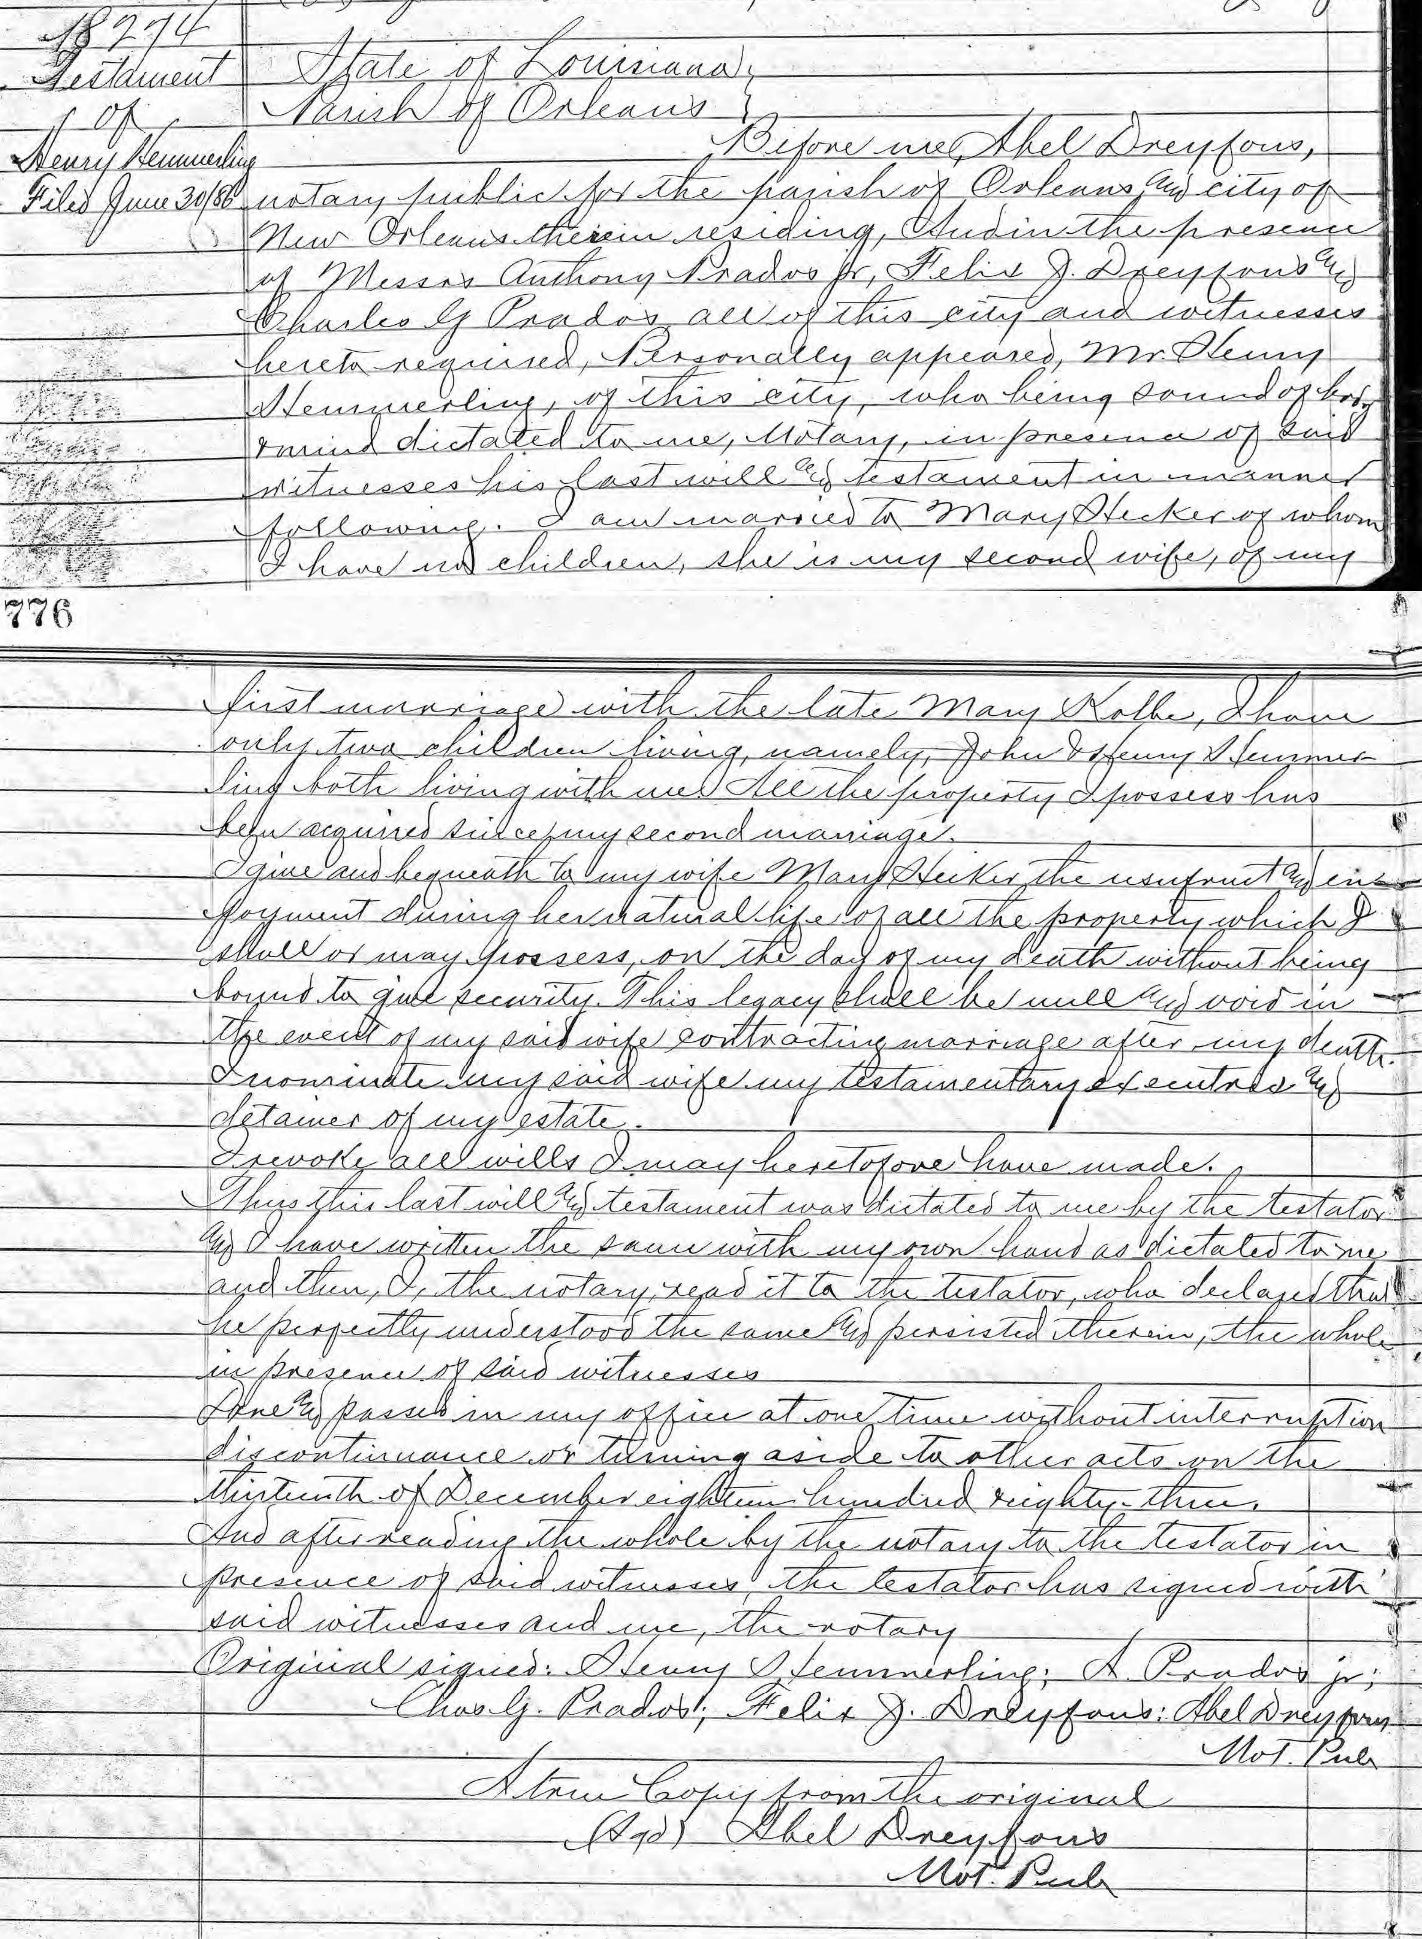 18274
Testament
of
Henry Hemmerling
Filed June 30/86
State of Louisiana
Parish of Orleans
Before me, Abel Dreyfous,
notary public for the parish of Orleans and city of
New Orleans therein residing, And in the presence
of Messrs Anthony Prados jr, Felix J. Dreyfous and
Charles G Prados all of this city and witnesses
hereto required, Personally appeared, Mr. Henry
Hemmerling, of this city, who being sound of body
& mind dictated to me, Notary, in presence of said
witnesses his last will and testament in manner
following. I am married to Mary Hecker of whom
I have no children, she is my second wife, of my
776
first marriage with the late Mary Kolbe, I have
only two children living, namely, John & Henry Hemmer
ling both living with me. All the property I possess has
been acquired since my second marriage.
I give and bequeath to my wife Mary Hecker the usufruct and en
joyment during her natural life of all the property which I
shall or may possess, on the day of my death without being
bound to give security. This legacy shall be null and void in
the event of my said wife contracting marriage after my death.
I nominate my said wife my testamentary executrix and
detainer of my estate.
I revoke all wills I may heretofore have made.
Thus this last will and testament was dictated to me by the testator
and I have written the same with my own hand as dictated to me
and then, I, the notary, read it to the testator, who declared that
he perfectly understood the same and persisted therein, the whole
in presence of said witnesses
Done and passed in my office at one time without interruption
discontinuance or turning aside to other acts on the
thirteenth of December eighteen hundred & eighty-three.
And after reading the whole by the notary to the testator in
presence of said witnesses, the testator has signed with
said witnesses and me, the notary
Original signed: Henry Hemmerling; A. Prados jr;
Chas G. Prados; Felix J. Dreyfous; Abel Dreyfous
Not. Pub
A true Copy from the original
(Sgd) Abel Dreyfous
Not. Pub